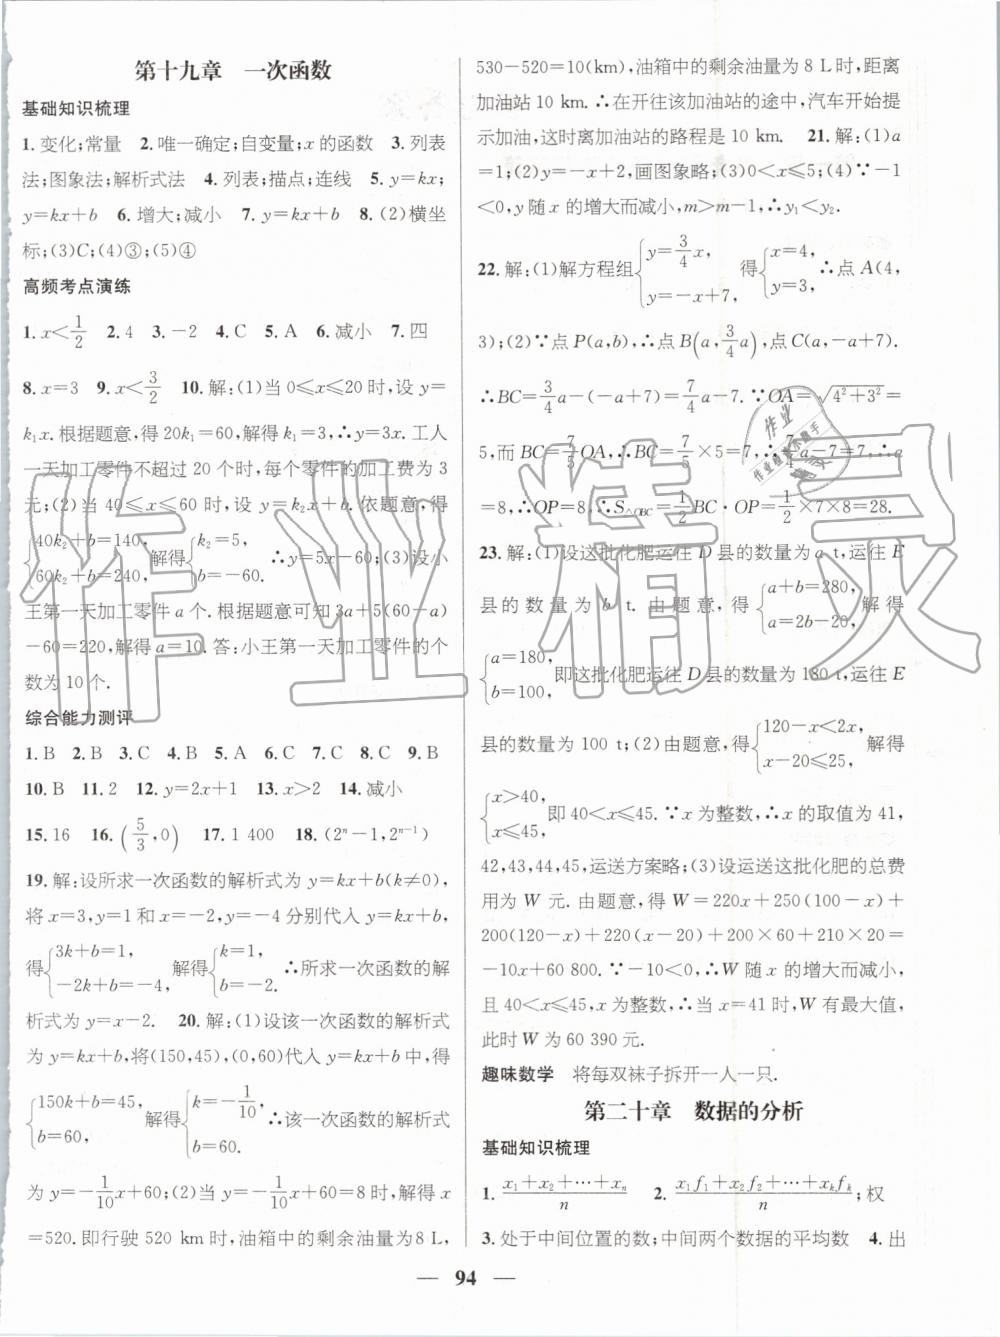 第十九章　一次函数
基础知识梳理
1. 变化;常量　2. 唯一确定;自变量;x 的函数　3. 列表
法;图象法;解析式法　4. 列表;描点;连线　5. y=kx;
y=kx+b　6. 增大;减小　7. y=kx+b　8. (2)横坐
标;(3)C;(4)③;(5)④
高频考点演练
1. x<1/2　2. 4　3. −2　4. C　5. A　6. 减小　7. 四
8. x=3　9. x<3/2　10. 解:(1)当 0≤x≤20 时,设 y=
k₁x. 根据题意,得 20k₁=60,解得 k₁=3,∴y=3x. 工人
一天加工零件不超过 20 个时,每个零件的加工费为 3
元;(2)当 40≤x≤60 时,设 y=k₂x+b. 依题意,得
{40k₂+b=140, 60k₂+b=240, 解得{k₂=5, b=−60. ∴y=5x−60;(3)设小
王第一天加工零件 a 个. 根据题意可知 3a+5(60−a)
−60=220,解得 a=10. 答:小王第一天加工零件的个
数为 10 个.
综合能力测评
1. B　2. B　3. C　4. B　5. A　6. C　7. C　8. C　9. B
10. B　11. 2　12. y=2x+1　13. x>2　14. 减小
15. 16　16. (5/3,0)　17. 1 400　18. (2ⁿ−1,2ⁿ⁻¹)
19. 解:设所求一次函数的解析式为 y=kx+b(k≠0),
将 x=3,y=1 和 x=−2,y=−4 分别代入 y=kx+b,
得{3k+b=1, −2k+b=−4, 解得{k=1, b=−2. ∴所求一次函数的解
析式为 y=x−2.　20. 解:(1)设该一次函数的解析式
为 y=kx+b,将(150,45),(0,60)代入 y=kx+b 中,得
{150k+b=45, b=60, 解得{k=−1/10, b=60. ∴该一次函数的解析式
为 y=−1/10x+60;(2)当 y=−1/10x+60=8 时,解得 x
=520. 即行驶 520 km 时,油箱中的剩余油量为 8 L,
530−520=10(km),油箱中的剩余油量为 8 L 时,距离
加油站 10 km. ∴在开往该加油站的途中,汽车开始提
示加油,这时离加油站的路程是 10 km.　21. 解:(1)a
=1;(2)y=−x+2,画图象略;(3)0<x≤5;(4)∵−1
<0,y 随 x 的增大而减小,m>m−1,∴y₁<y₂.
22. 解:(1)解方程组{y=3/4x, y=−x+7, 得{x=4, y=3, ∴点 A(4,
3);(2)∵点 P(a,b),∴点 B(a,3/4a),点 C(a,−a+7).
∴BC=3/4a−(−a+7)=7/4a−7. ∵OA=√(4²+3²)=
5,而 BC=7/5OA,∴BC=7/5×5=7,∴7/4a−7=7,∴a
=8,∴OP=8,∴S△OBC=1/2BC·OP=1/2×7×8=28.
23. 解:(1)设这批化肥运往 D 县的数量为 a t,运往 E
县的数量为 b t. 由题意,得{a+b=280, a=2b−20, 解得
{a=180, b=100, 即这批化肥运往 D 县的数量为 180 t,运往 E
县的数量为 100 t;(2)由题意,得{120−x<2x, x−20≤25, 解得
{x>40, x≤45, 即 40<x≤45. ∵x 为整数,∴x 的取值为 41,
42,43,44,45,运送方案略;(3)设运送这批化肥的总费
用为 W 元. 由题意,得 W=220x+250(100−x)+
200(120−x)+220(x−20)+200×60+210×20=
−10x+60 800. ∵−10<0,∴W 随 x 的增大而减小,
且 40<x≤45,x 为整数,∴当 x=41 时,W 有最大值,
此时 W 为 60 390 元.
趣味数学　将每双袜子拆开一人一只.
第二十章　数据的分析
基础知识梳理
1. (x₁+x₂+⋯+xₙ)/n　2. (x₁f₁+x₂f₂+⋯+xₖfₖ)/n;权
3. 处于中间位置的数;中间两个数据的平均数　4. 出
— 94 —
作业精灵